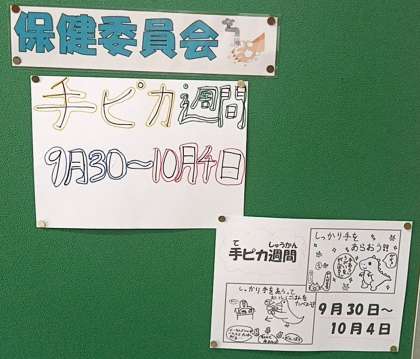 保健委員会
手ピカ週間
9月30〜10月4日
て しゅうかん
手ピカ週間
しっかり手を
あらおう!!
しっかり手をあらって
おいしくごはんを
たべよう!!
9月30日〜
10月4日